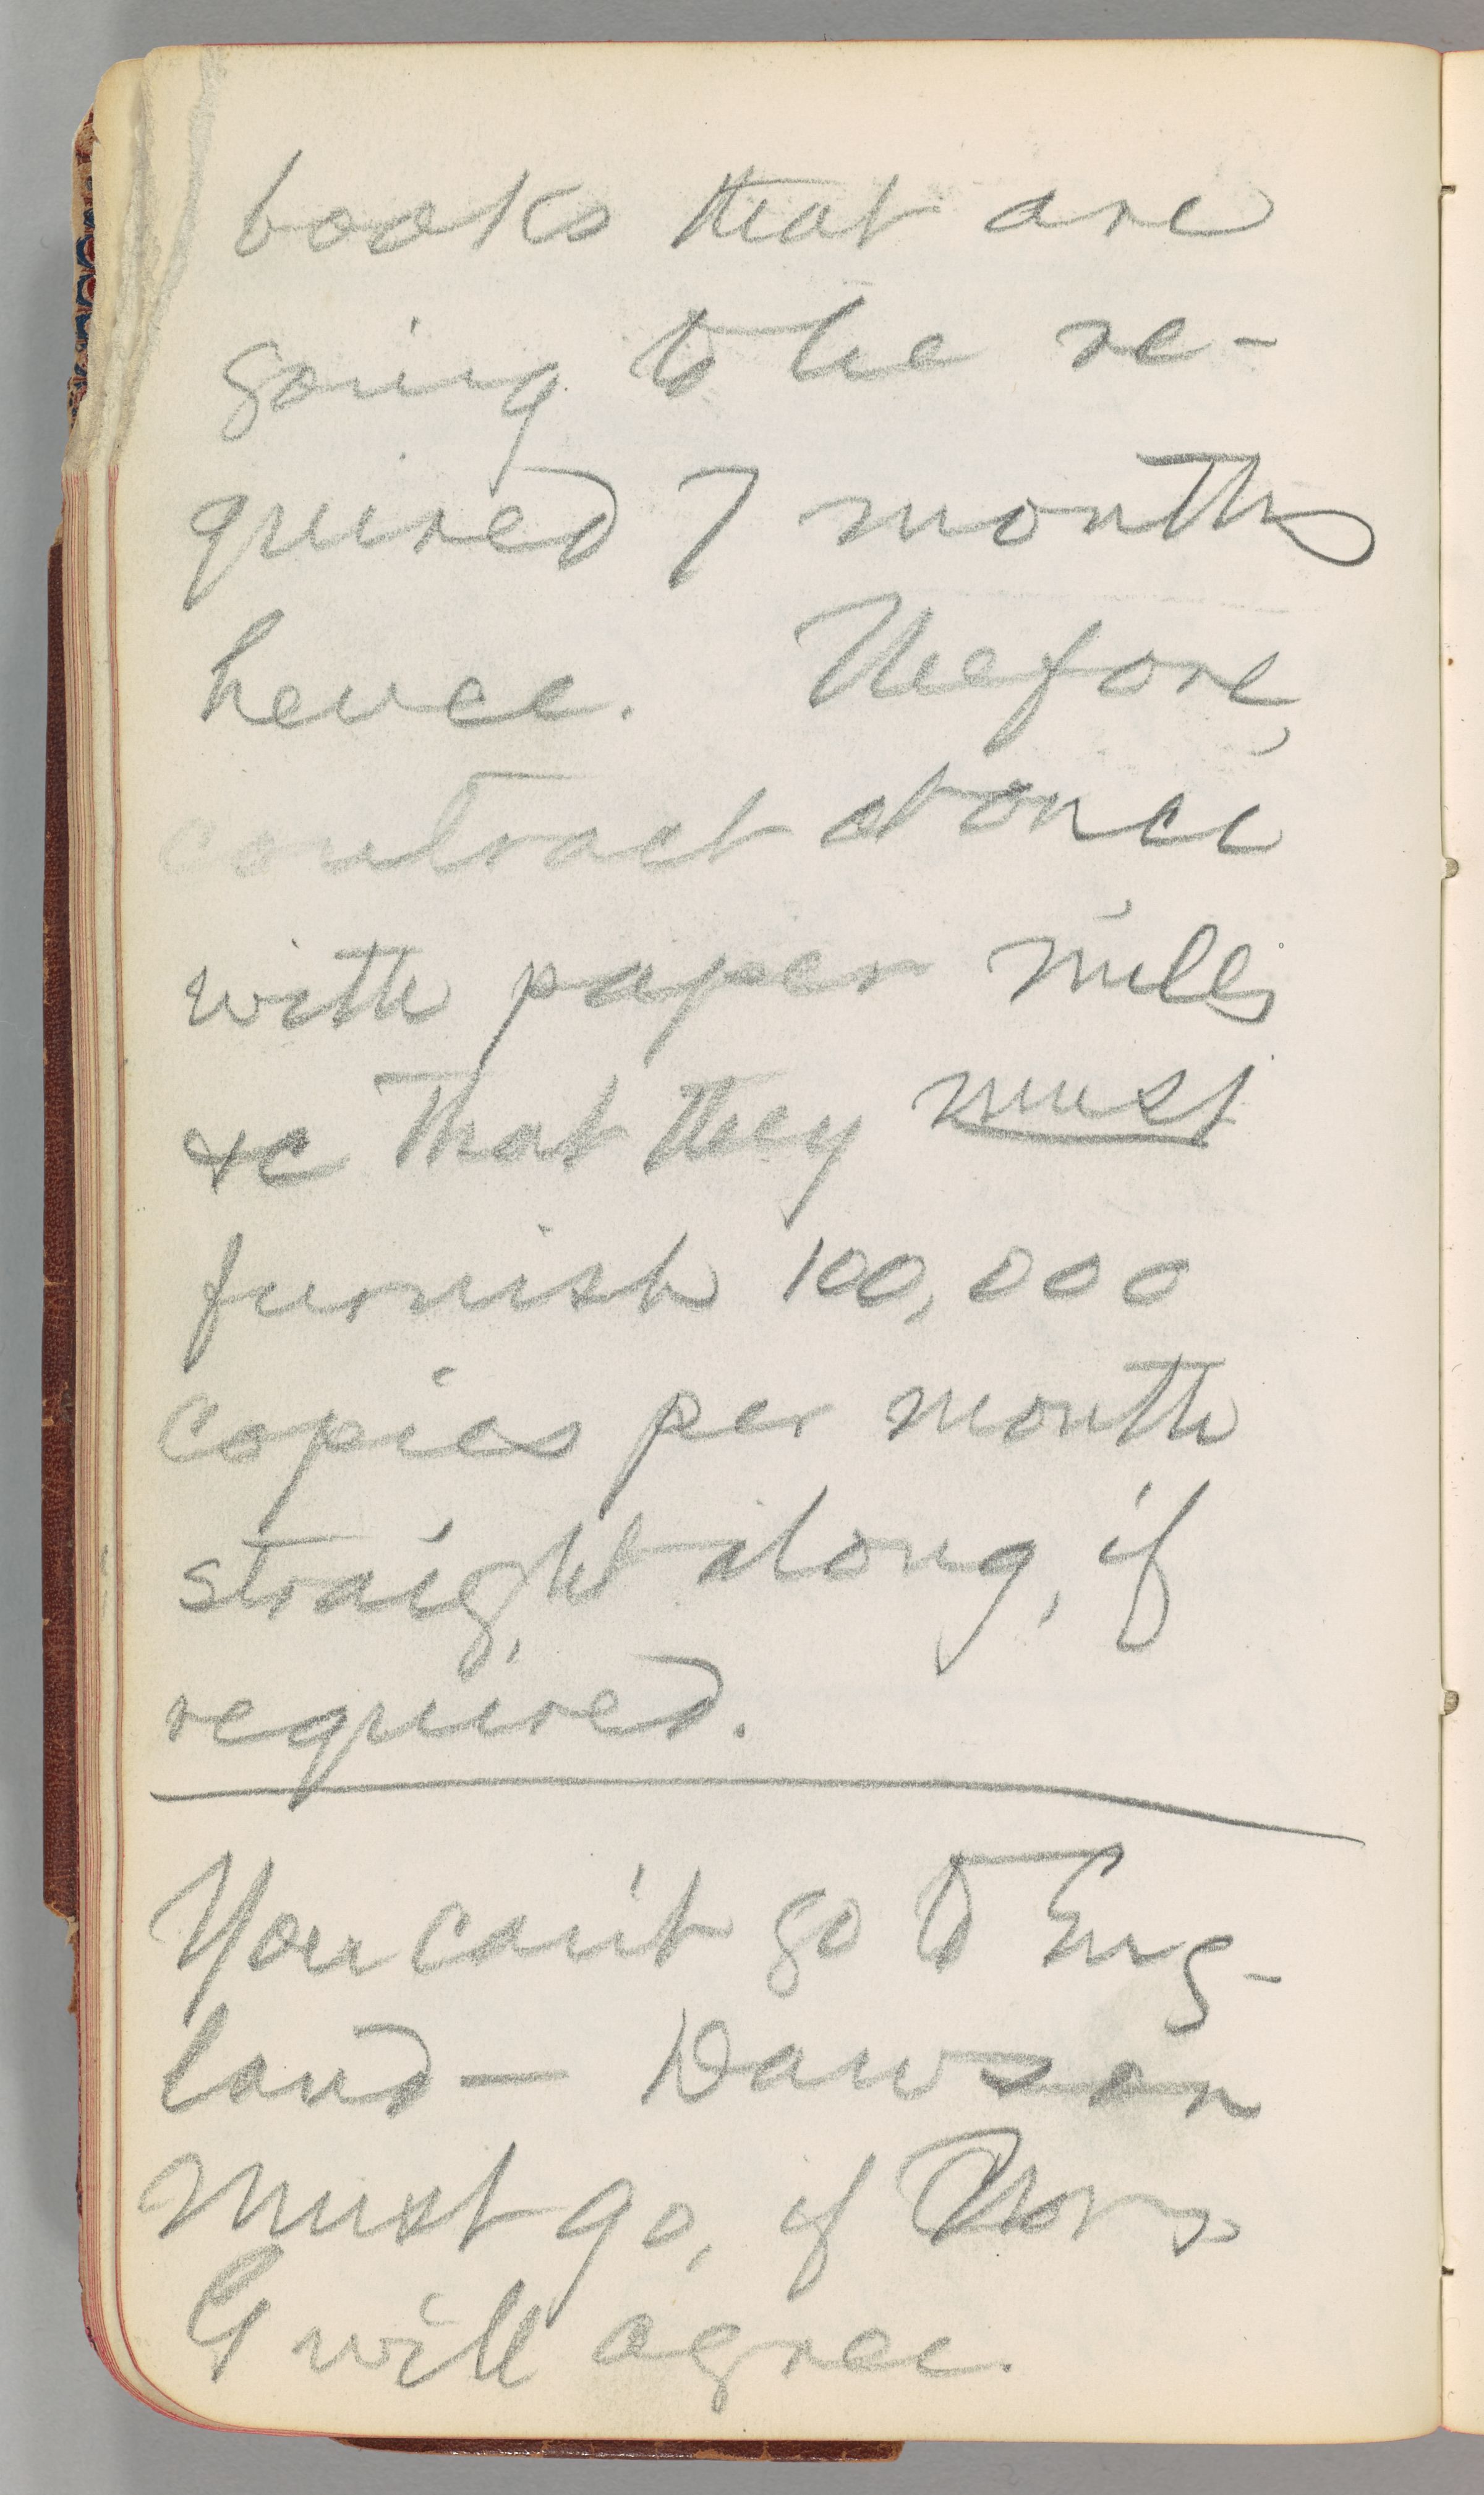 books that are
going to be re-
quired 7 months
hence. Thefore,
contract at once
with paper mills
&c that they must
furnish 100,000
copies per month
straight along, if
required.
You can't go to Eng-
land — Dawson
must go, if
G will agree.